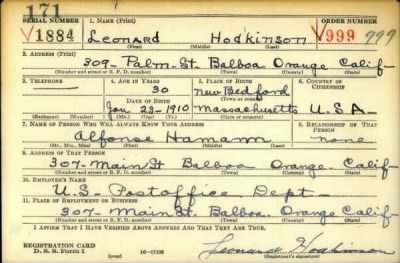 171
SERIAL NUMBER 1. NAME (Print) ORDER NUMBER
1884 Leonard Hodkinson V999 999
(First) (Middle) (Last)
2. ADDRESS (Print)
309- Palm-St. Balboa Orange Calif
(Number and street or R. F. D. number) (Town) (County) (State)
3. TELEPHONE 4. AGE IN YEARS 5. PLACE OF BIRTH 6. COUNTRY OF CITIZENSHIP
30 New Bedford
DATE OF BIRTH (Town or county)
Jan 23-1910 Massachusetts U.S.A.
(Exchange) (Number) (Mo.) (Day) (Yr.) (State or country)
7. NAME OF PERSON WHO WILL ALWAYS KNOW YOUR ADDRESS 8. RELATIONSHIP OF THAT PERSON
Alfonse Hamann none
(Mr., Mrs., Miss) (First) (Middle) (Last)
9. ADDRESS OF THAT PERSON
307-Main St Balboa Orange Calif
(Number and street or R. F. D. number) (Town) (County) (State)
10. EMPLOYER'S NAME
U.S. Postoffice Dept-
11. PLACE OF EMPLOYMENT OR BUSINESS
307-Main St. Balboa Orange Calif
(Number and street or R. F. D. number) (Town) (County) (State)
I AFFIRM THAT I HAVE VERIFIED ABOVE ANSWERS AND THAT THEY ARE TRUE.
REGISTRATION CARD
D. S. S. Form 1 (over) Leonard Hodkinson
(Registrant's signature)